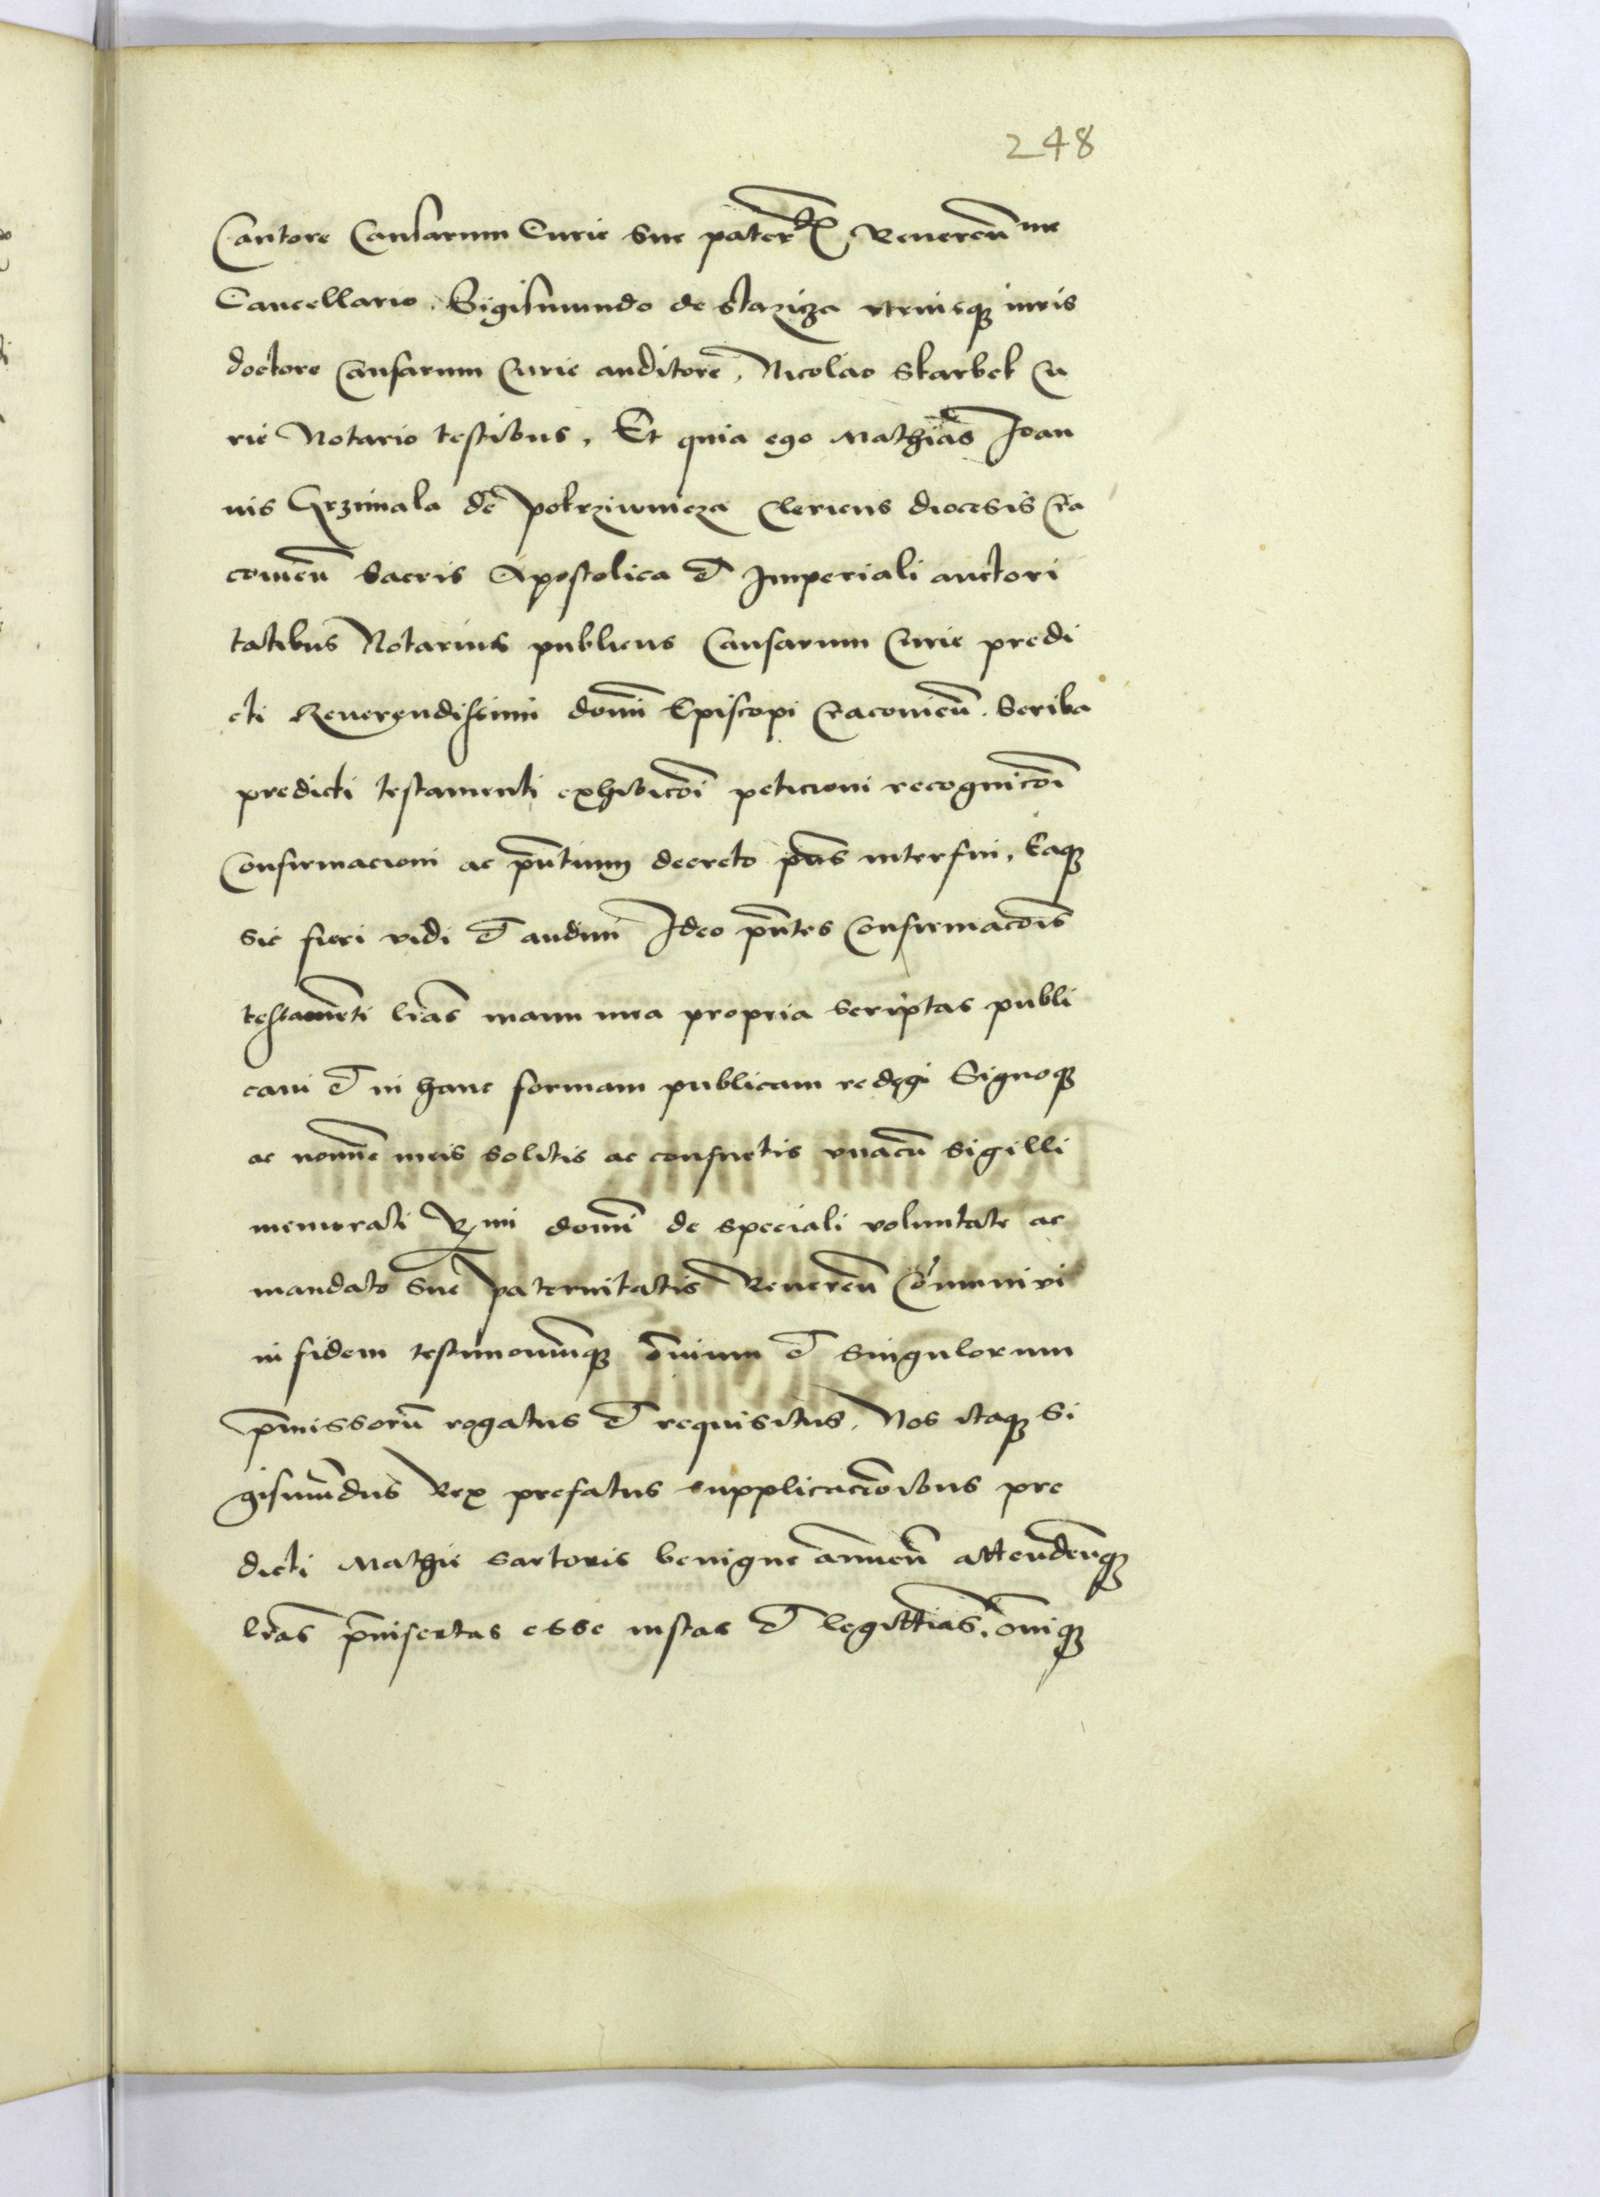 248
Cantore Causarum Curie Sue pater Reuereñ me
Cancellario. Sigismundo de Stazicza vtriusq iuris
doctore Causarum Curie auditore, Nicolao Skarbek Cu
rie Notario testibus, Et quia ego Mathias Joan
nis Grzimala de Pokrziwnicza Clericus diocesis Cra
couieñ Sacris Apostolica et Imperiali auctori
tatibus Notarius publicus Causarum Curie predi
cti Reuerendissimi domĩ Episcopi Cracouieñ. Scriba
predicti testamenti exhibicõi peticioni recognicõi
Confirmacioni ac pñtium decreto pñs interfui, Eaq
sic fieri vidi et audiui Ideo pñtes Confirmacõis
testamenti lras manu mea propria scriptas publi
caui et in hanc formam publicam redegi Signoq
ac nomine meis solitis ac consuetis vnacũ sigilli
memorati Rmi domĩ de speciali voluntate ac
mandato Sue paternitatis Reuereñ Cõmuniui
in fidem testimoniumq õnium et singulorum
pmissorũ rogatus et requisitus. Nos itaq Si
gismũdus Rex prefatus supplicacionibus pre
dicti Mathie sartoris benigne annueñ attendeñq
lras pinsertas esse iustas et legittimas, õniq